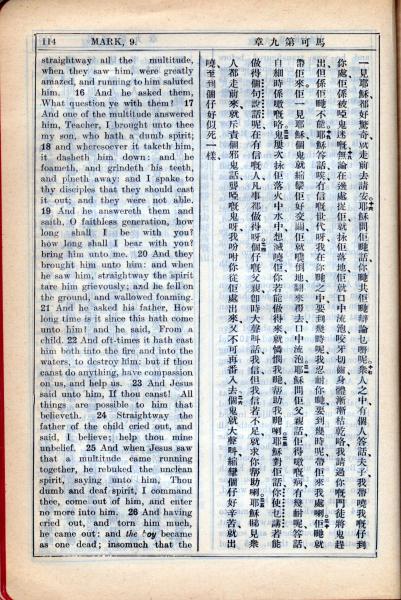 114 MARK, 9.
straightway all the multitude,
when they saw him, were greatly
amazed, and running to him saluted
him. 16 And he asked them,
What question ye with them? 17
And one of the multitude answered
him, Teacher, I brought unto thee
my son, who hath a dumb spirit;
18 and wheresoever it taketh him,
it dasheth him down: and he
foameth, and grindeth his teeth,
and pineth away: and I spake to
thy disciples that they should cast
it out; and they were not able.
19 And he answereth them and
saith, O faithless generation, how
long shall I be with you?
how long shall I bear with you?
bring him unto me. 20 And they
brought him unto him: and when
he saw him, straightway the spirit
tare him grievously; and he fell on
the ground, and wallowed foaming.
21 And he asked his father, How
long time is it since this hath come
unto him? and he said, From a
child. 22 And oft-times it hath cast
him both into the fire and into the
waters, to destroy him: but if thou
canst do anything, have compassion
on us, and help us. 23 And Jesus
said unto him, If thou canst! All
things are possible to him that
believeth. 24 Straightway the
father of the child cried out, and
said, I believe; help thou mine
unbelief. 25 And when Jesus saw
that a multitude came running
together, he rebuked the unclean
spirit, saying unto him, Thou
dumb and deaf spirit, I command
thee, come out of him, and enter
no more into him. 26 And having
cried out, and torn him much,
he came out: and the boy became
as one dead; insomuch that the
章九第可馬
一見耶穌都好驚奇就走前去請安耶穌問佢哋話你哋共佢哋辯論乜嘢呢眾人之中有個人答話夫子我帶曉我嘅仔到
你處佢係被啞鬼迷嘅無論在邊處捉佢就佢落地佢就口中流泡咬牙切齒身體漸漸枯乾咯我請過你嘅門徒將鬼趕
出但係佢哋不能耶穌答話唉冇信嘅世代呀我在你哋之中要到幾時呢我忍耐你哋要到幾時呢帶佢來我處喇佢哋就
帶佢來佢一見耶穌個鬼就縮攣佢好交關佢就倒地翻來口中流泡耶穌問佢父親話佢嘅病有幾耐呢答話
自細時係噉嘅咯鬼屢次佢落火中水中想滅佢你若能做得來就憐憫我哋幫助我哋喇耶穌對佢話你使乜講若能
做得個句說話呢在有信嘅人凡事都做得呀個仔嘅父親卽時大聲叫話我信但我信若不足就求你幫助喇耶穌睇見眾
人都走前來就斥責個邪鬼話聾啞嘅鬼呀我吩咐你從佢處出來又不可再番入去個鬼就大聲叫縮攣個仔好辛苦就出
曉至到個仔好似死一樣